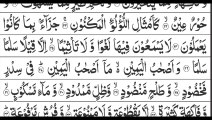 حُوْرٌ عِيْنٌ ۙ كَاَمْثَالِ اللُّؤْلُؤِ الْمَكْنُوْنِ ۚ جَزَآءًۢ بِمَا كَانُوْا
يَعْمَلُوْنَ لَا يَسْمَعُوْنَ فِيْهَا لَغْوًا وَّلَا تَاْثِيْمًا ۙ اِلَّا قِيْلًا سَلٰمًا
سَلٰمًا وَاَصْحٰبُ الْيَمِيْنِ ۙ مَاۤ اَصْحٰبُ الْيَمِيْنِ ؕ فِيْ سِدْرٍ
مَّخْضُوْدٍ ۙ وَّطَلْحٍ مَّنْضُوْدٍ ۙ وَّظِلٍّ مَّمْدُوْدٍ ۙ وَّمَآءٍ مَّسْكُوْبٍ ۙ